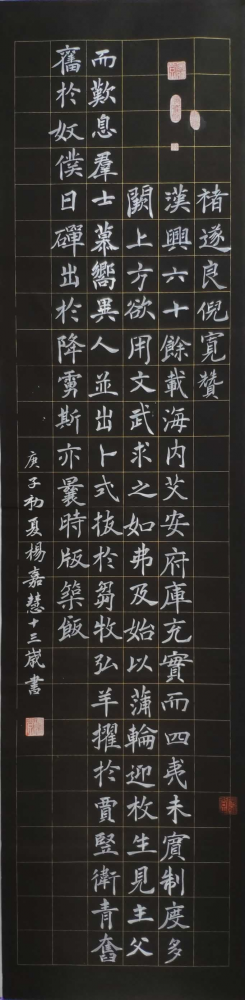 褚遂良倪寬贊
漢興六十餘載海內艾安府庫充實而四夷未賓制度多
闕上方欲用文武求之如弗及始以蒲輪迎枚生見主父
而歎息羣士慕嚮異人並出卜式拔於芻牧弘羊擢於賈豎衛青奮
奮於奴僕日磾出於降虜斯亦曩時版築飯
庚子初夏楊嘉慧十三歲書